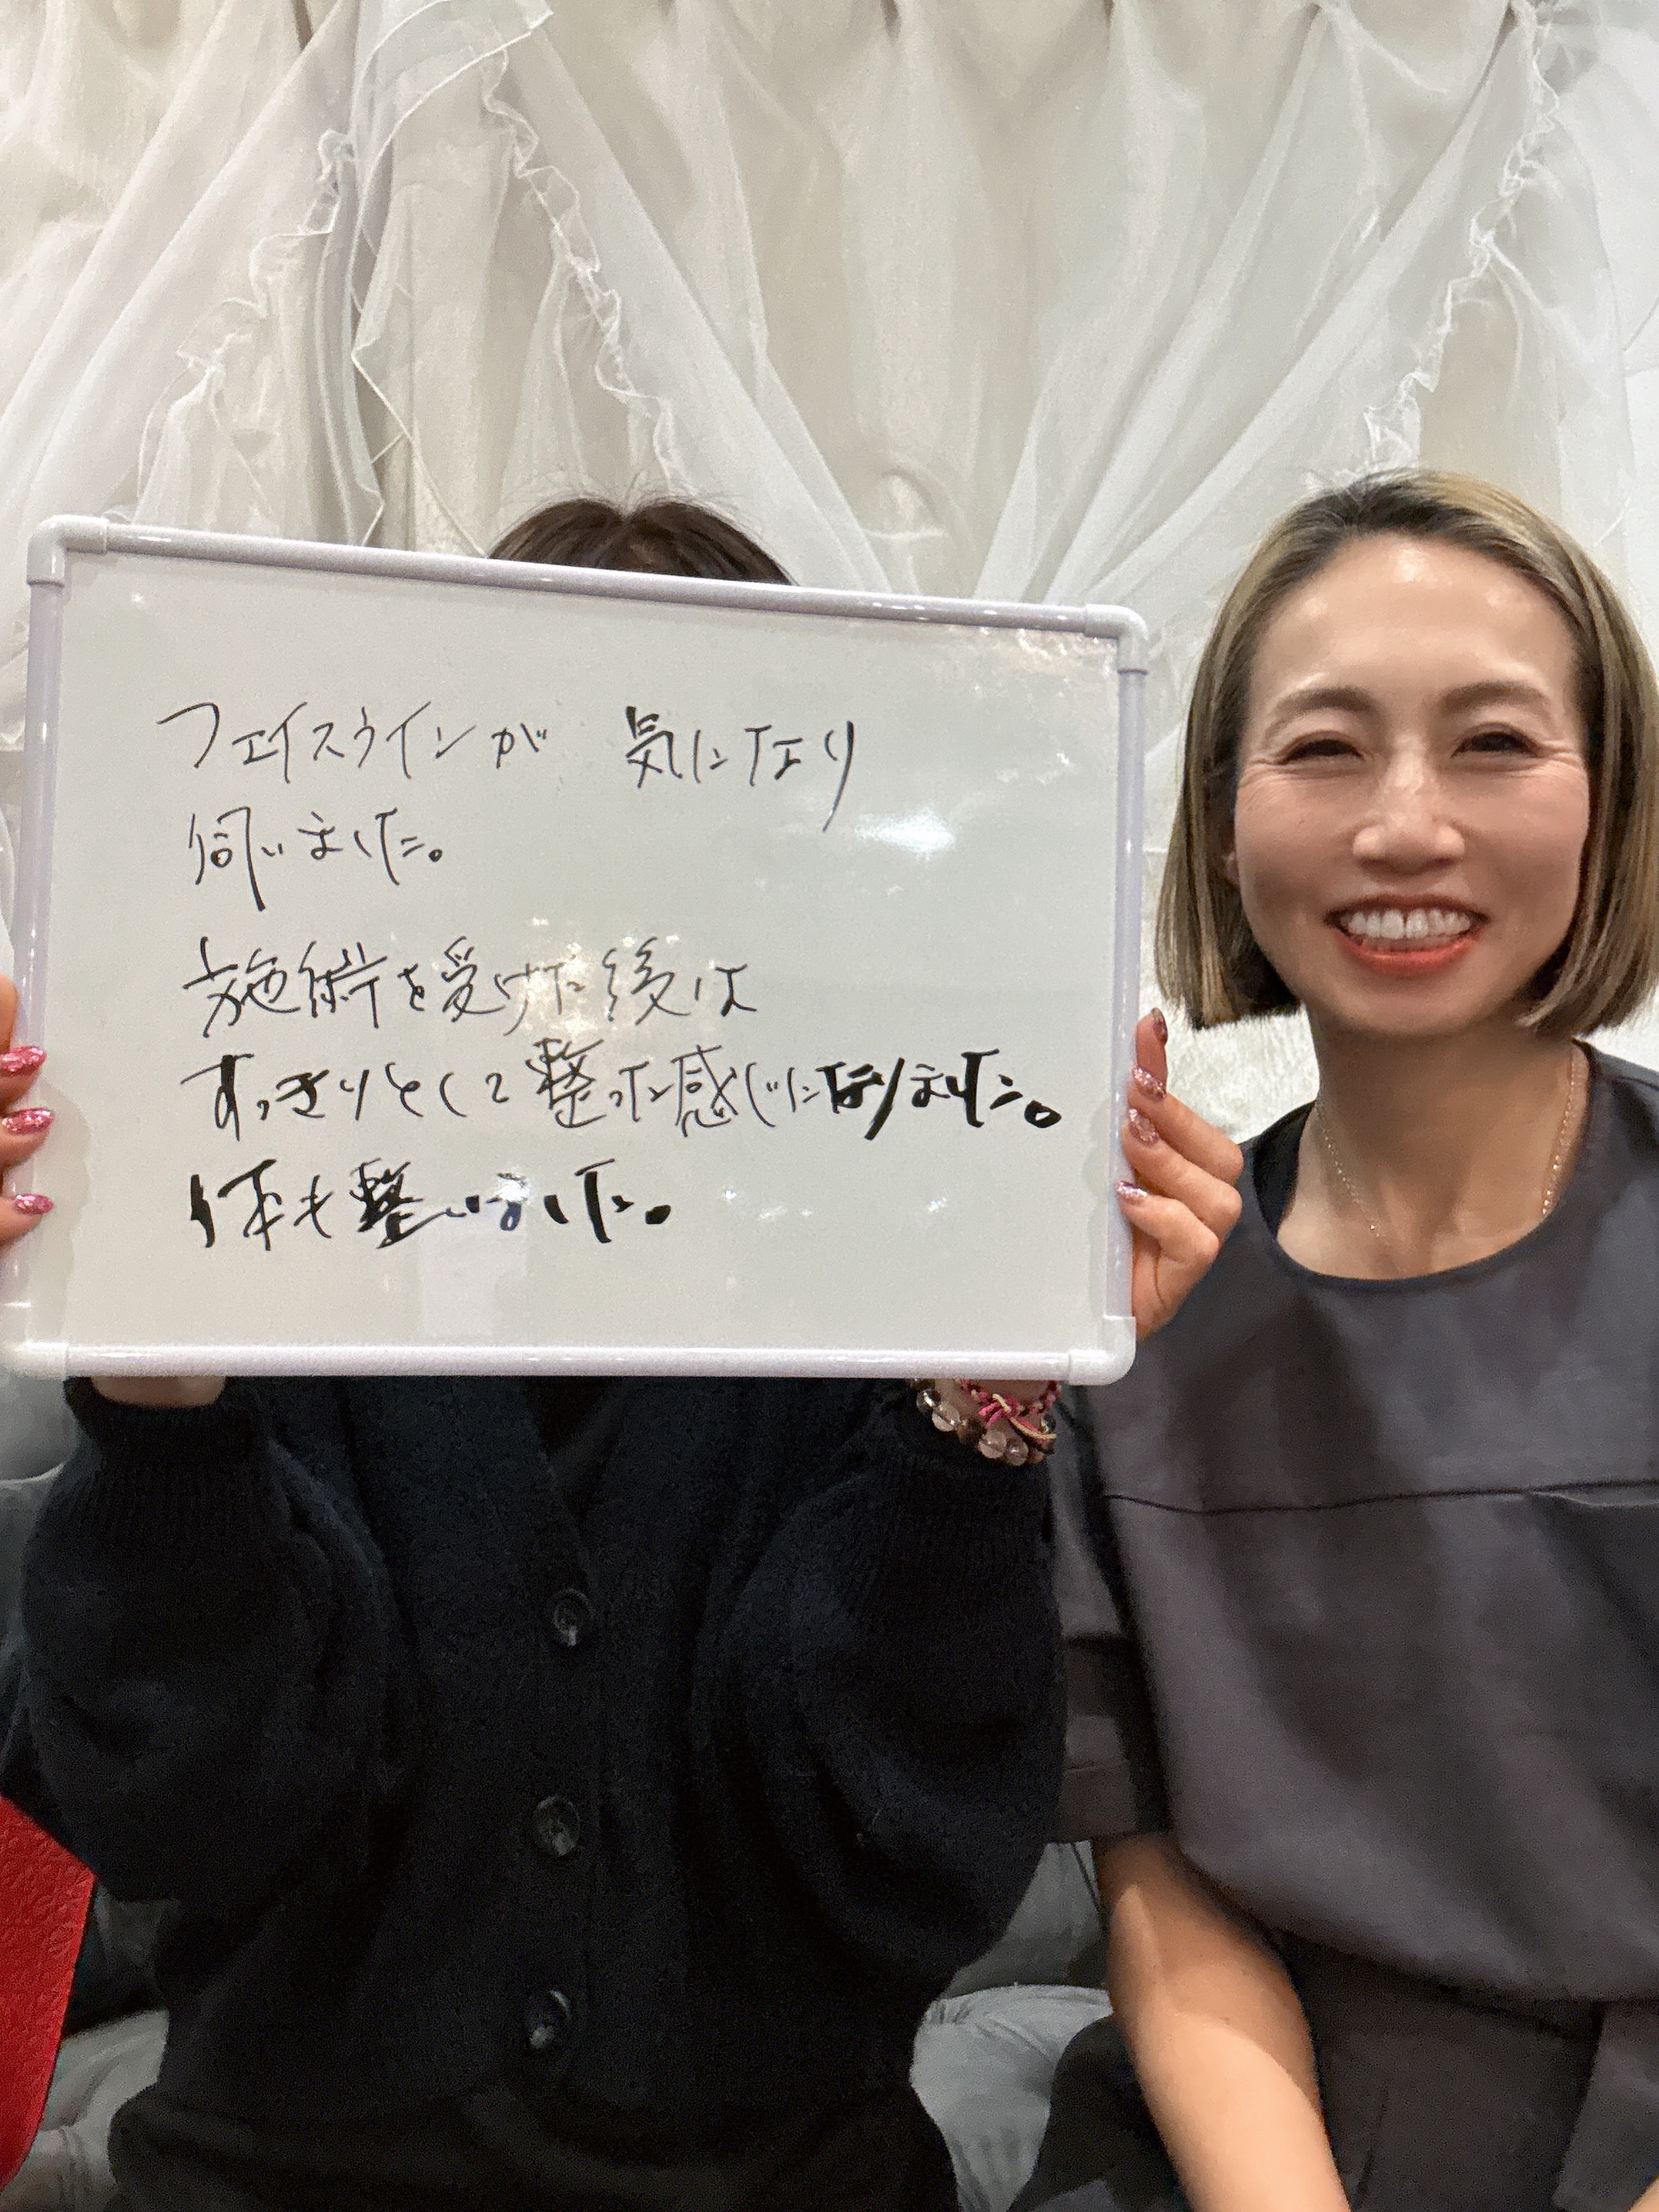 フェイスラインが 気になり
伺いました。
施術を受けた後は
すっきりとして整った感じになりました。
体も整いました。